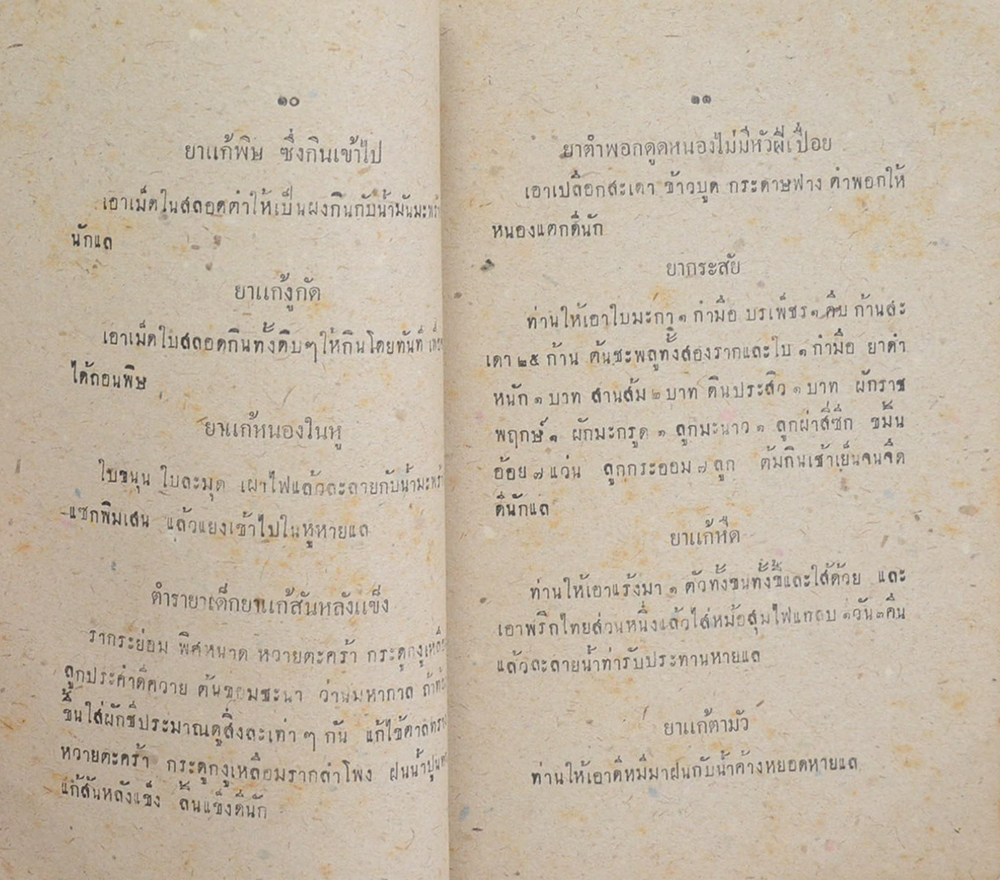 ๑๐
ยาแก้พิษ ซึ่งกินเข้าไป
เอาเม็ดในสลอดตำให้เป็นผงกินกับน้ำมันมะพร้
นักแล
ยาแก้งูกัด
เอาเม็ดใบสลอดกินทั้งดิบๆ ให้กินโดยทันที
ได้ถอนพิษ
ยาแก้หนองในหู
ใบขนุน ใบละมุด เผาไฟแล้วละลายกับน้ำมะพร้
แซกพิมเสน แล้วแยงเข้าไปในหูหายแล
ตำรายาเด็กยาแก้สันหลังแข็ง
รากระย่อม พิศหนาด หวายตะคร้า กระดูกงูเหลือ
ลูกประคำดีควาย ต้นขอบชะนา ว่านมหากาล ถ้า
ขึ้นใส่ผักชีประมาณดูสิ่งละเท่า ๆ กัน แก้ไข้ตาล
หวายตะคร้า กระดูกงูเหลือมรากลำโพง ฝนน้ำปูน
แก้สันหลังแข็ง ลิ้นแข็งดีนัก
๑๑
ยาตำพอกดูดหนองไม่มีหัวฝีเปื่อย
เอาเปลือกสะเดา ข้าวบูด กระดาษฟาง ตำพอกให้
หนองแตกดีนัก
ยากระสัย
ท่านให้เอาใบมะกา ๑ กำมือ บรเพ็ชร ๑ คืบ ก้านสะ
เดา ๒๕ ก้าน ต้นชะพลูทั้งสองรากและใบ ๑ กำมือ ยาดำ
หนัก ๑ บาท สานส้ม ๒ บาท ดินประสิว ๑ บาท ฝักราช
พฤกษ์ ๑ ฝักมะกรูด ๑ ลูกมะนาว ๑ ลูกผ่าสี่ซีก ขมิ้น
อ้อย ๗ แว่น ลูกกระออม ๗ ลูก ต้มกินเช้าเย็นจนจืด
ดีนักแล
ยาแก้หืด
ท่านให้เอาแร้งมา ๑ ตัวทั้งขนทั้งขี้และไส้ด้วย และ
เอาพริกไทยส่วนหนึ่งแล้วใส่หม้อสุมไฟแกลบ ๓วัน๓คืน
แล้วละลายน้ำท่ารับประทานหายแล
ยาแก้ตามัว
ท่านให้เอาดีหมีมาฝนกับน้ำค้างหยอดหายแล